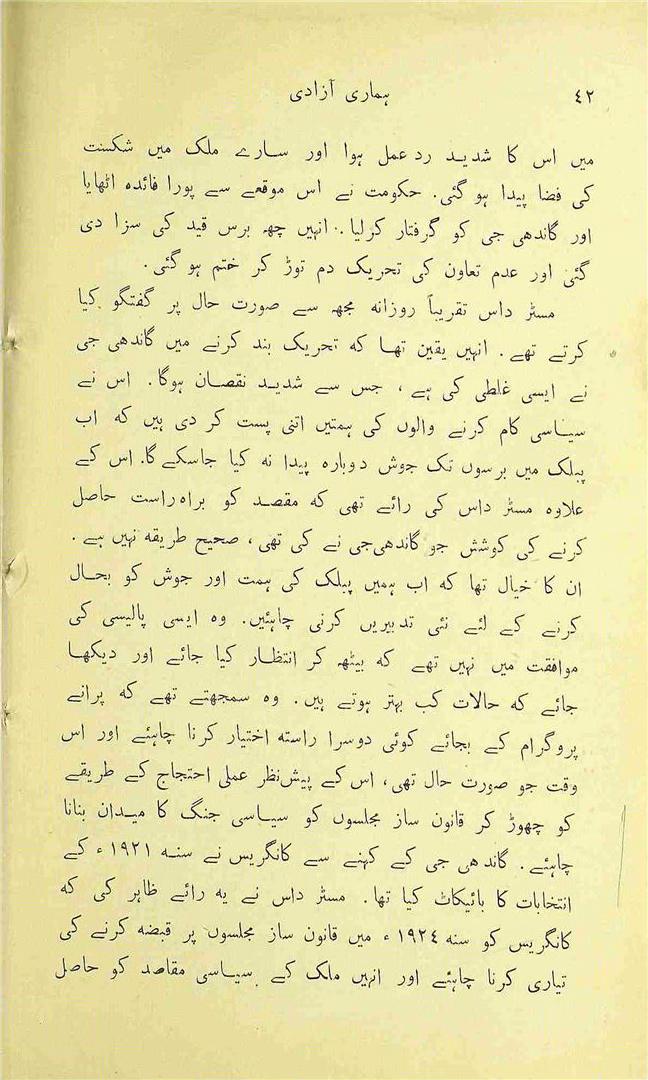 ٤٢ ہماری آزادی
میں اس کا شدید رد عمل ہوا اور سارے ملک میں شکست
کی فضا پیدا ہو گئی۔ حکومت نے اس موقعے سے پورا فائدہ اٹھایا
اور گاندھی جی کو گرفتار کرلیا۔ انہیں چھہ برس قید کی سزا دی
گئی اور عدم تعاون کی تحریک دم توڑ کر ختم ہو گئی۔
مسٹر داس تقریباً روزانہ مجھہ سے صورت حال پر گفتگو کیا
کرتے تھے۔ انہیں یقین تھا کہ تحریک بند کرنے میں گاندھی جی
نے ایسی غلطی کی ہے ، جس سے شدید نقصان ہوگا۔ اس نے
سیاسی کام کرنے والوں کی ہمتیں اتنی پست کر دی ہیں کہ اب
پبلک میں برسوں تک جوش دوبارہ پیدا نہ کیا جاسکے گا۔ اس کے
علاوہ مسٹر داس کی رائے تھی کہ مقصد کو براہ راست حاصل
کرنے کی کوشش جو گاندھی جی نے کی تھی ، صحیح طریقہ نہیں ہے۔
ان کا خیال تھا کہ اب ہمیں پبلک کی ہمت اور جوش کو بحال
کرنے کے لئے نئی تدبیریں کرنی چاہئیں۔ وہ ایسی پالیسی کی
موافقت میں نہیں تھے کہ بیٹھہ کر انتظار کیا جائے اور دیکھا
جائے کہ حالات کب بہتر ہوتے ہیں۔ وہ سمجھتے تھے کہ پرانے
پروگرام کے بجائے کوئی دوسرا راستہ اختیار کرنا چاہئے اور اس
وقت جو صورت حال تھی ، اس کے پیش نظر عملی احتجاج کے طریقے
کو چھوڑ کر قانون ساز مجلسوں کو سیاسی جنگ کا میدان بنانا
چاہئے۔ گاندھی جی کے کہنے سے کانگریس نے سنہ ١٩٢١ء کے
انتخابات کا بائیکاٹ کیا تھا۔ مسٹر داس نے یہ رائے ظاہر کی کہ
کانگریس کو سنہ ١٩٢٤ء میں قانون ساز مجلسوں پر قبضہ کرنے کی
تیاری کرنا چاہئے اور انہیں ملک کے سیاسی مقاصد کو حاصل